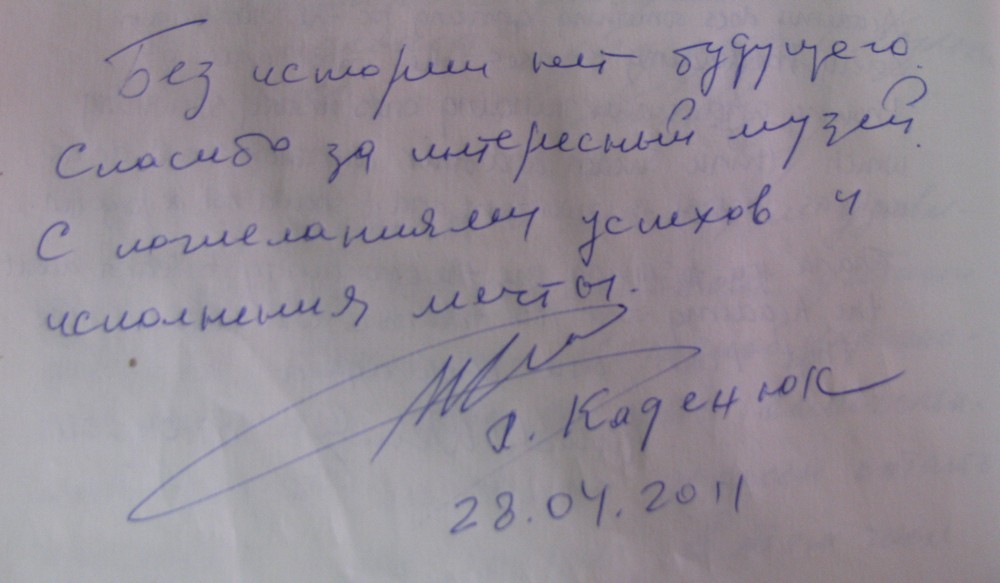 Без истории нет будущего.
Спасибо за интересный музей.
С пожеланиями успехов и
исполнения мечты.
Л. Каденюк
28.04.2011